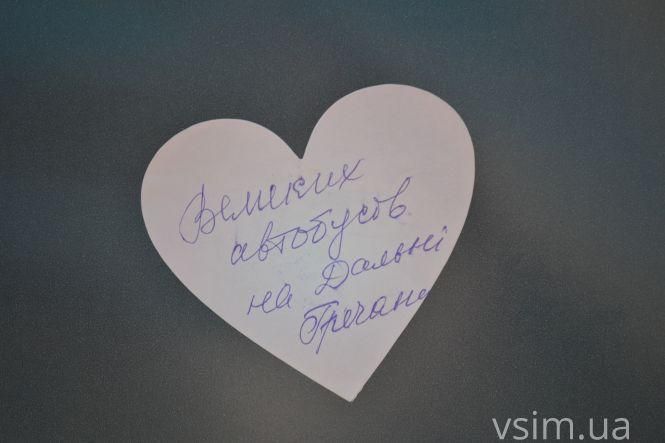 Великих
автобусов
на Дальні
Гречани
vsim.ua